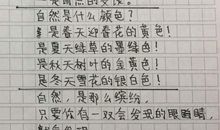 自然是什么颜色?
是春天迎春花的黄色!
是夏天绿草的墨绿色!
是秋天树叶的金黄色!
是冬天雪花的银白色!
自然,是那么缤纷,
只要你有一双会发现的眼睛,